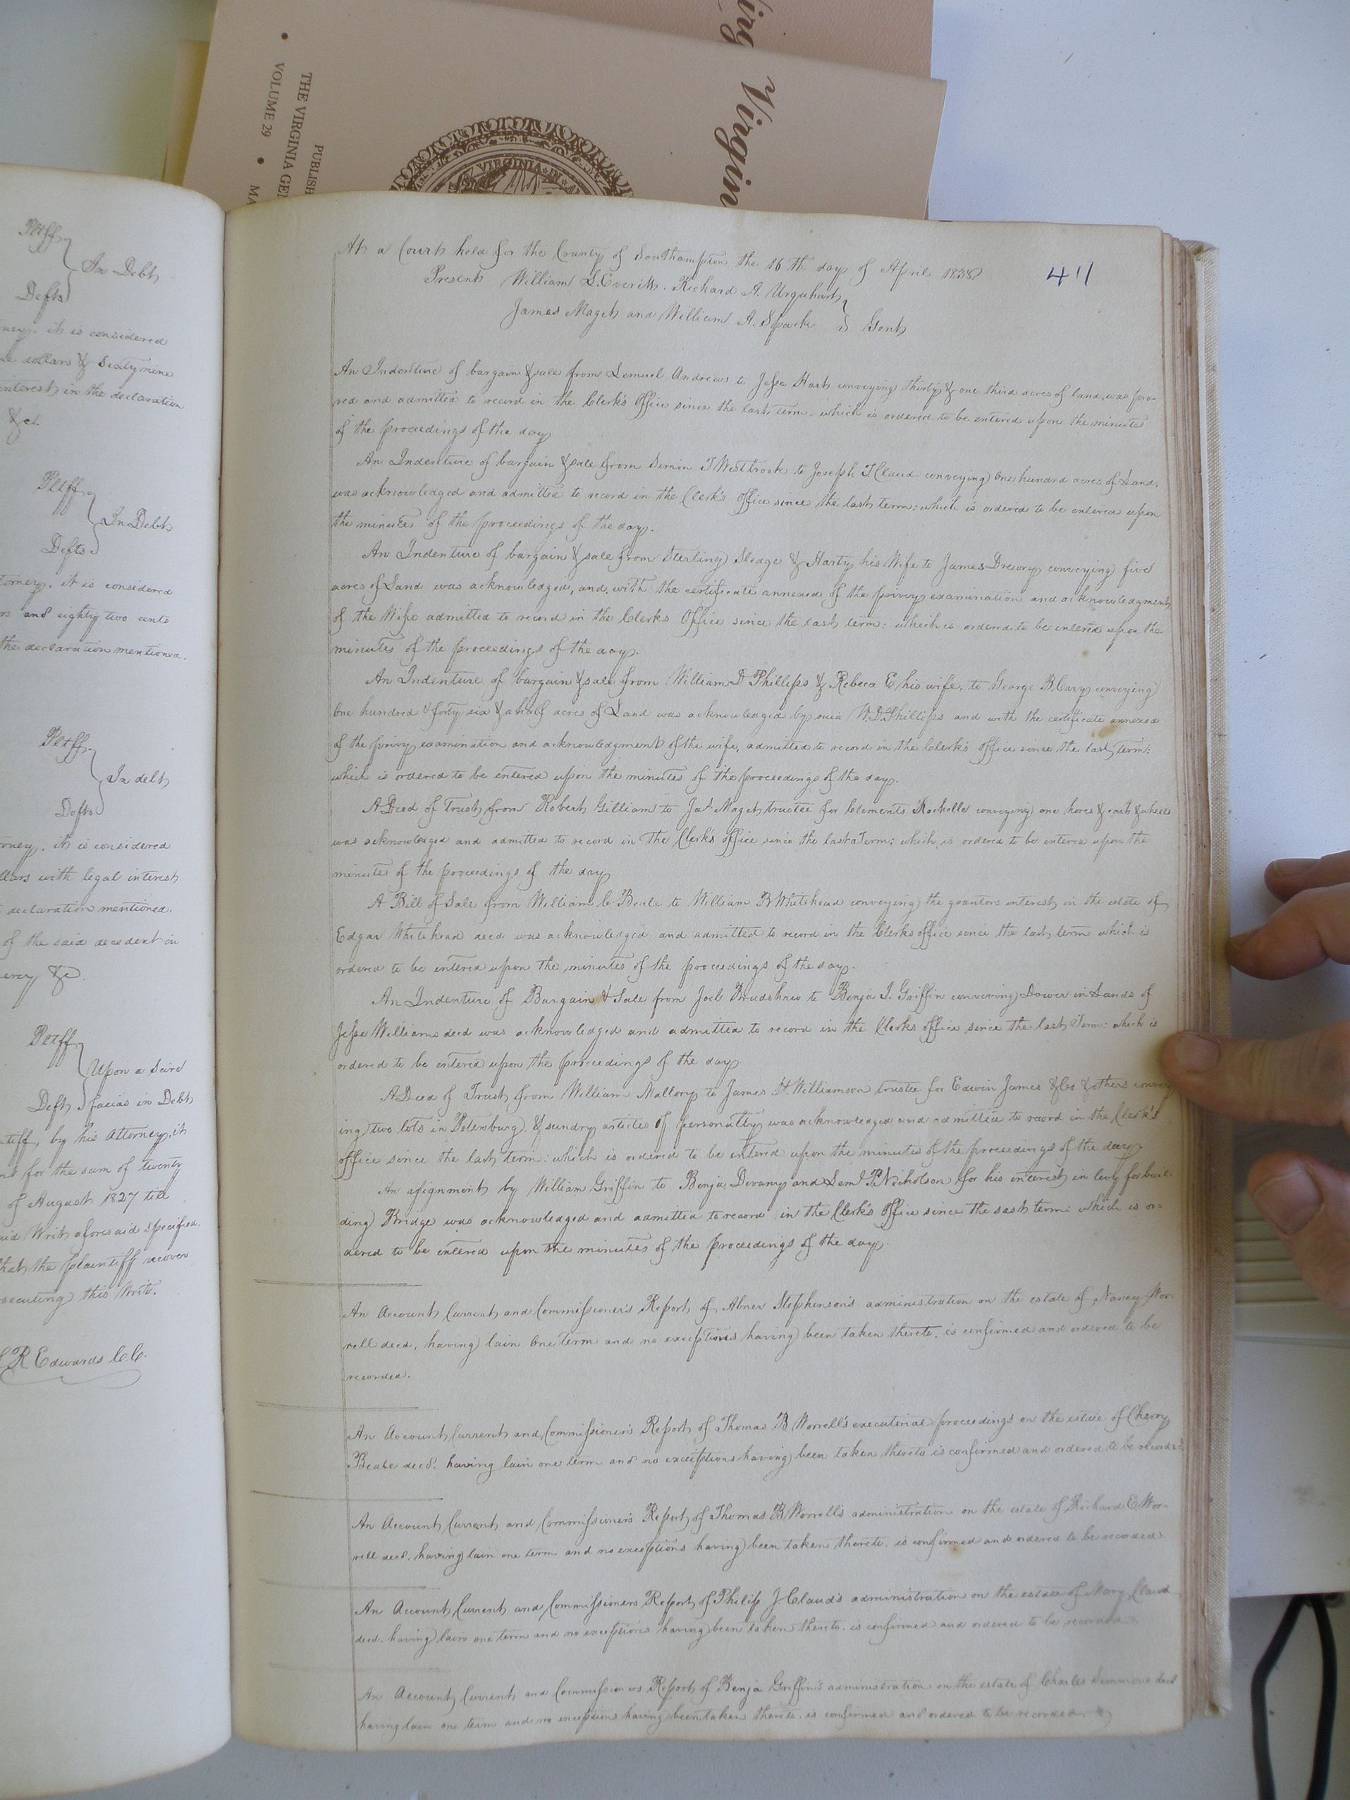 THE VIRGINIA GE
VOLUME 29
PUBLISH
MA
VIRGINIA
Virgin
Pltff
In Debt
Defts
it is considered
dollars & Sixty nine
interest in the declaration
&c.
Pltff
In Debt
Defts
torney, it is considered
and eighty two cents
the declaration mentioned.
Pltff
In debt
Defts
rney, it is considered
llars with legal interest
declaration mentioned.
of the said decedent in
&c
Pltff
Upon a Scire
Deft facias in Debt
tiff, by his Attorney, it
for the sum of twenty
of August 1827 till
Writ aforesaid specified.
that the plaintiff recover
this Writ.
R Edwards C.C.
41
At a Court held for the County of Southampton the 16th day of April 1838
Present William L. Everitt. Richard A. Urquhart
James Maget and William A. Spark } Gent
An Indenture of bargain & sale from Lemuel Andrews to Jesse Hart conveying thirty & one third acres of land, was pro-
ved and admitted to record in the Clerk's Office since the last term. which is ordered to be entered upon the minutes
of the proceedings of the day
An Indenture of bargain & sale from Simon T Westbrook to Joseph T Claud conveying One hundred acres of Land,
was acknowledged and admitted to record in the Clerks Office since the last term: which is ordered to be entered upon
the minutes of the proceedings of the day.
An Indenture of bargain & sale from Sterling Sledge & Harty his Wife to James Drewry conveying five
acres of Land was acknowledged, and, with the certificate annexed of the privy examination and acknowledgment
of the Wife admitted to record in the Clerks Office since the last term: which is ordered to be entered upon the
minutes of the proceedings of the day.
An Indenture of bargain & sale from William D Phillips & Rebeca E his wife, to George B Cary conveying
One hundred & forty six & a half acres of Land was acknowledged by said W. D. Phillips and with the certificate annexed
of the privy examination and acknowledgment of the wife, admitted to record in the Clerk's Office since the last term:
which is ordered to be entered upon the minutes of the proceedings of the day.
A Deed of Trust from Robert Gilliam to Jas Maget trustee for Clements Rochelle conveying one horse & cart & wheels
was acknowledged and admitted to record in the Clerk's Office since the last Term; which is ordered to be entered upon the
minutes of the proceedings of the day
A Bill of Sale from William C Beale to William B Whitehead conveying the grantors interest in the estate of
Edgar Whitehead decd was acknowledged and admitted to record in the Clerks office since the last term which is
ordered to be entered upon the minutes of the proceedings of the day.
An Indenture of Bargain & Sale from Joel Bradshaw to Benja J. Griffin conveying Dower in Lands of
Jesse Williams decd was acknowledged and admitted to record in the Clerks office since the last Term: which is
ordered to be entered upon the proceedings of the day
A Deed of Trust from William Mallory to James H Williamson trustee for Edwin James & Co & others convey
ing two lots in Petersburg & sundry articles of personalty was acknowledged and admitted to record in the Clerk's
office since the last term: which is ordered to be entered upon the minutes of the proceedings of the day
An assignment by William Griffin to Benja Devany and Seml B Nicholson for his interest in levy for buil
ding Bridge was acknowledged and admitted to record in the Clerks Office since the last term: which is or-
dered to be entered upon the minutes of the proceedings of the day
An Account Current and Commissioner's Report of Abner Stephenson's administration on the estate of Nancy Wor-
rell decd, having lain One term and no exceptions having been taken thereto, is confirmed and ordered to be
recorded.
An Account Current and Commissioner's Report of Thomas B Worrell's executorial proceedings on the estate of Cherry
Beale decd. having lain one term and no exceptions having been taken thereto is confirmed and ordered to be recorded
An Account Current and Commissioner's Report of Thomas B Worrell's administration on the estate of Richard E Wor-
rell decd. having lain one term and no exceptions having been taken thereto. is confirmed and ordered to be recorded
An Account Current and Commissioners Report of Philip J Claud's administration on the estate of Mary Claud
decd. having lain one term and no exceptions having been taken thereto. is confirmed and ordered to be recorded
An Account Current and Commissioners Report of Benja Griffin's administration on the estate of Charles Simmons decd
having lain one term and no exceptions having been taken thereto. is confirmed and ordered to be recorded